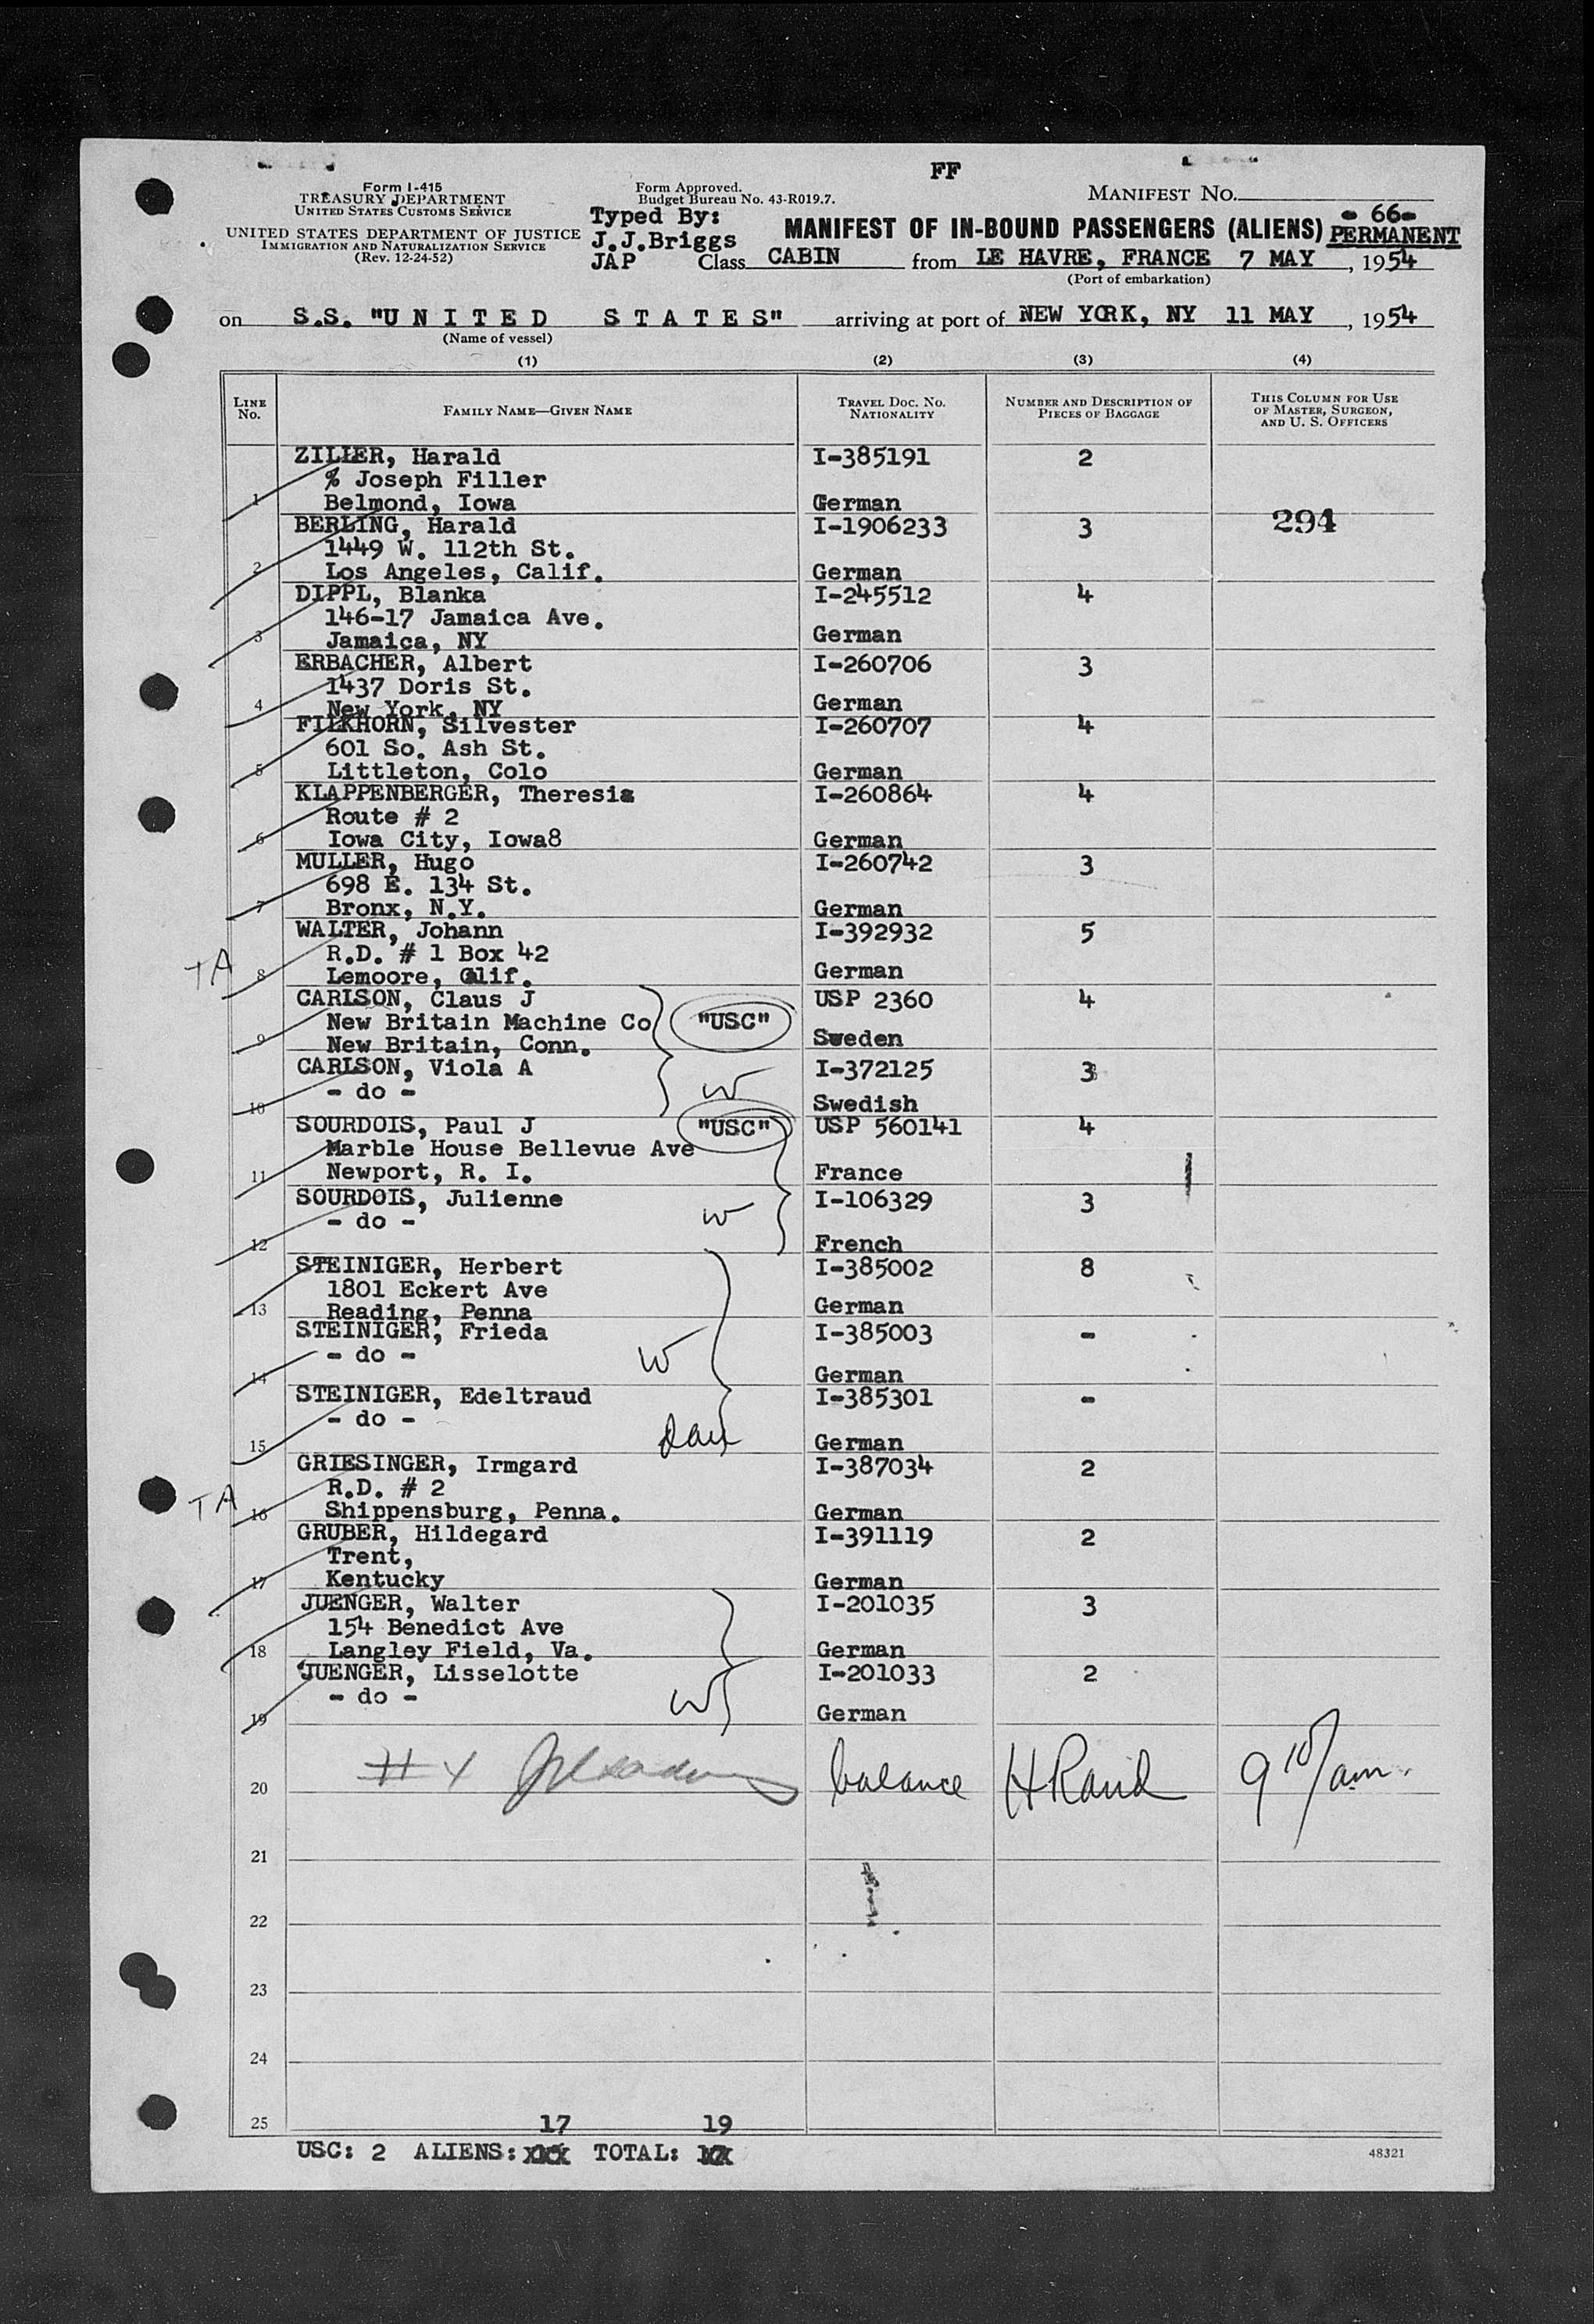 FF
Form I-415
TREASURY DEPARTMENT
UNITED STATES CUSTOMS SERVICE
UNITED STATES DEPARTMENT OF JUSTICE
IMMIGRATION AND NATURALIZATION SERVICE
(Rev. 12-24-52)
Form Approved.
Budget Bureau No. 43-R019.7.
Typed By:
J.J.Briggs
JAP
MANIFEST NO.
- 66-
MANIFEST OF IN-BOUND PASSENGERS (ALIENS) PERMANENT
Class CABIN from LE HAVRE, FRANCE 7 MAY, 1954
(Port of embarkation)
on S.S. "UNITED STATES" arriving at port of NEW YORK, NY 11 MAY, 1954
(Name of vessel)
(1) (2) (3) (4)
LINE NO. FAMILY NAME—GIVEN NAME TRAVEL DOC. NO. NATIONALITY NUMBER AND DESCRIPTION OF PIECES OF BAGGAGE THIS COLUMN FOR USE OF MASTER, SURGEON, AND U. S. OFFICERS
ZILLER, Harald I-385191 2
% Joseph Filler
1 Belmond, Iowa German
BERLING, Harald I-1906233 3 294
1449 W. 112th St.
2 Los Angeles, Calif. German
DIPPL, Blanka I-245512 4
146-17 Jamaica Ave.
3 Jamaica, NY German
ERBACHER, Albert I-260706 3
1437 Doris St.
4 New York, NY German
FILKHORN, Silvester I-260707 4
601 So. Ash St.
5 Littleton, Colo German
KLAPPENBERGER, Theresia I-260864 4
Route # 2
6 Iowa City, Iowa8 German
MULLER, Hugo I-260742 3
698 E. 134 St.
7 Bronx, N.Y. German
WALTER, Johann I-392932 5
R.D. # 1 Box 42
TA 8 Lemoore, Calif. German
CARLSON, Claus J USP 2360 4
New Britain Machine Co "USC"
9 New Britain, Conn. Sweden
CARLSON, Viola A I-372125 3
- do - W
10 Swedish
SOURDOIS, Paul J "USC" USP 560141 4
Marble House Bellevue Ave
11 Newport, R. I. France
SOURDOIS, Julienne I-106329 3
- do - W
12 French
STEINIGER, Herbert I-385002 8
1801 Eckert Ave
13 Reading, Penna German
STEINIGER, Frieda I-385003 -
- do - W
14 German
STEINIGER, Edeltraud I-385301 -
- do - dau
15 German
GRIESINGER, Irmgard I-387034 2
R.D. # 2
TA 16 Shippensburg, Penna. German
GRUBER, Hildegard I-391119 2
Trent,
17 Kentucky German
JUENGER, Walter I-201035 3
154 Benedict Ave
18 Langley Field, Va. German
JUENGER, Lisselotte I-201033 2
- do - W
19 German
20 #4 balance 9 10/am.
21
22
23
24
25 17 19
USC: 2 ALIENS: XXX TOTAL: XX
48321